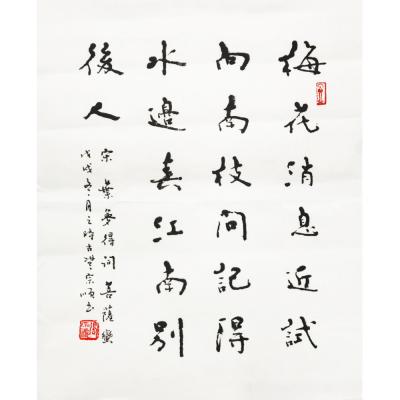 梅花消息近試
向南枝問記得
水邊春江南別
後人
宋葉夢得詞菩薩蠻
戊戌冬月之時古
宗順書